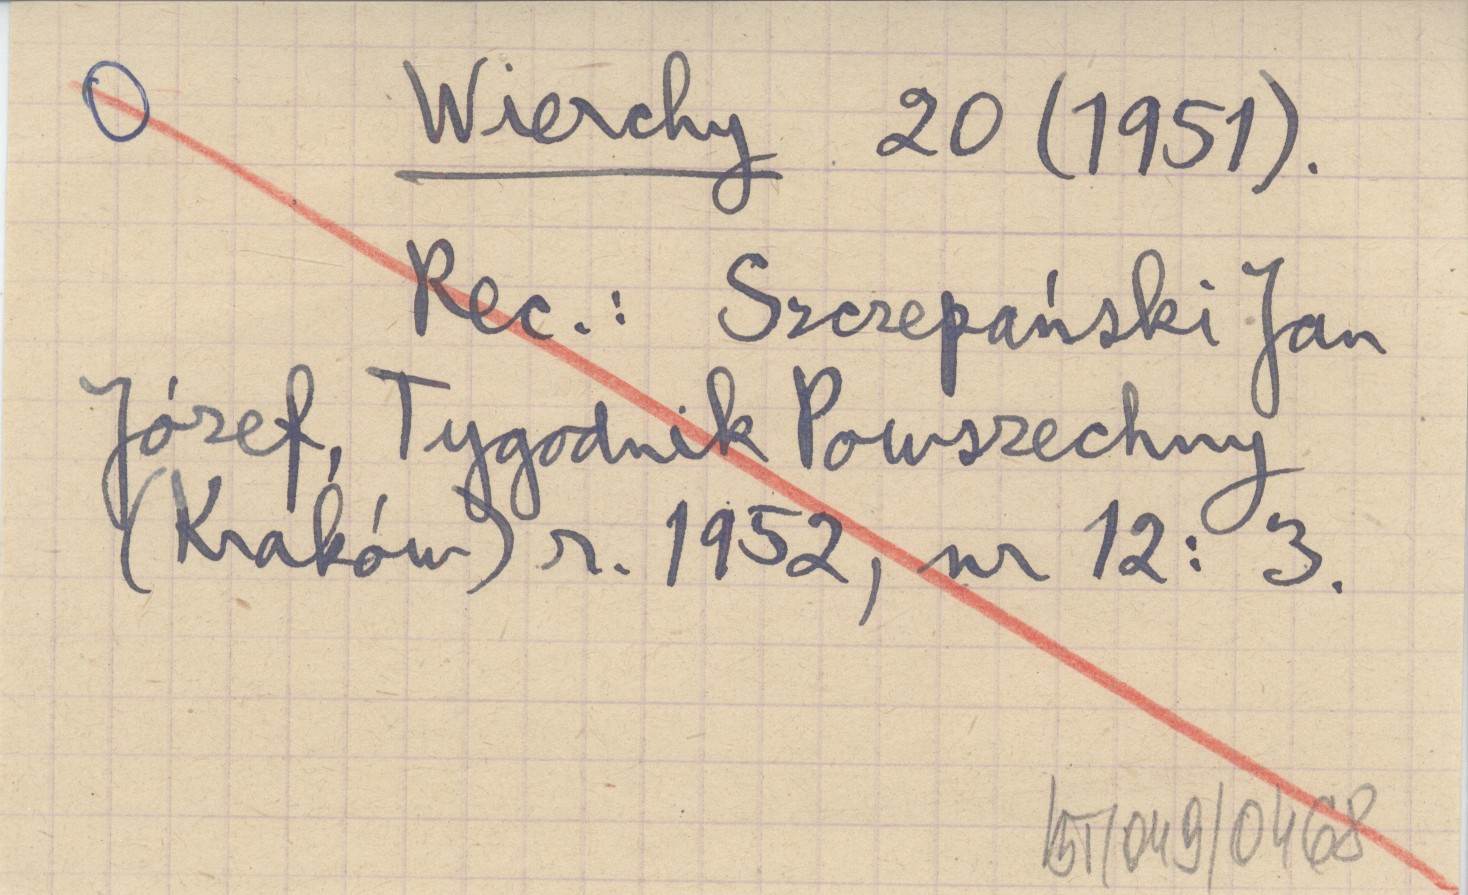 Wierchy 20 (1951).
Rec.: Szczepański Jan
Józef, Tygodnik Powszechny
(Kraków) r. 1952, nr 12: 3.